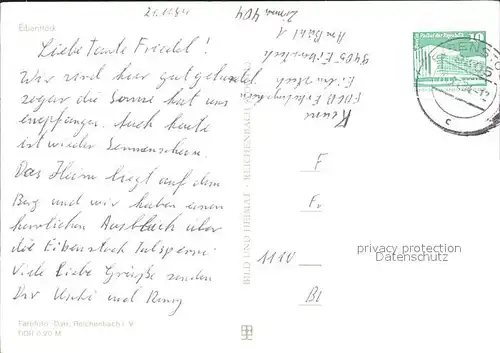 Eibenstock
Liebe Tante Friedel!
Wir sind hier gut gelandet
sogar die Sonne hat uns
empfangen. Auch heute
ist wieder Sonnenschein.
Das Heim liegt auf dem
Berg und wir haben einen
herrlichen Ausblick über
die Eibenstock Talsperre
Viele liebe Grüße senden
Dir Uschi und
Farbfoto: Dan, Reichenbach i. V.
BILD UND HEIMAT · REICHENBACH
Zimmer 404
Am Bühl 1
9405 Eibenstock
Eibenstock
FDGB Erholungsheim
10
F
Fr
1110
Bl
c
privacy protection
Datenschutz